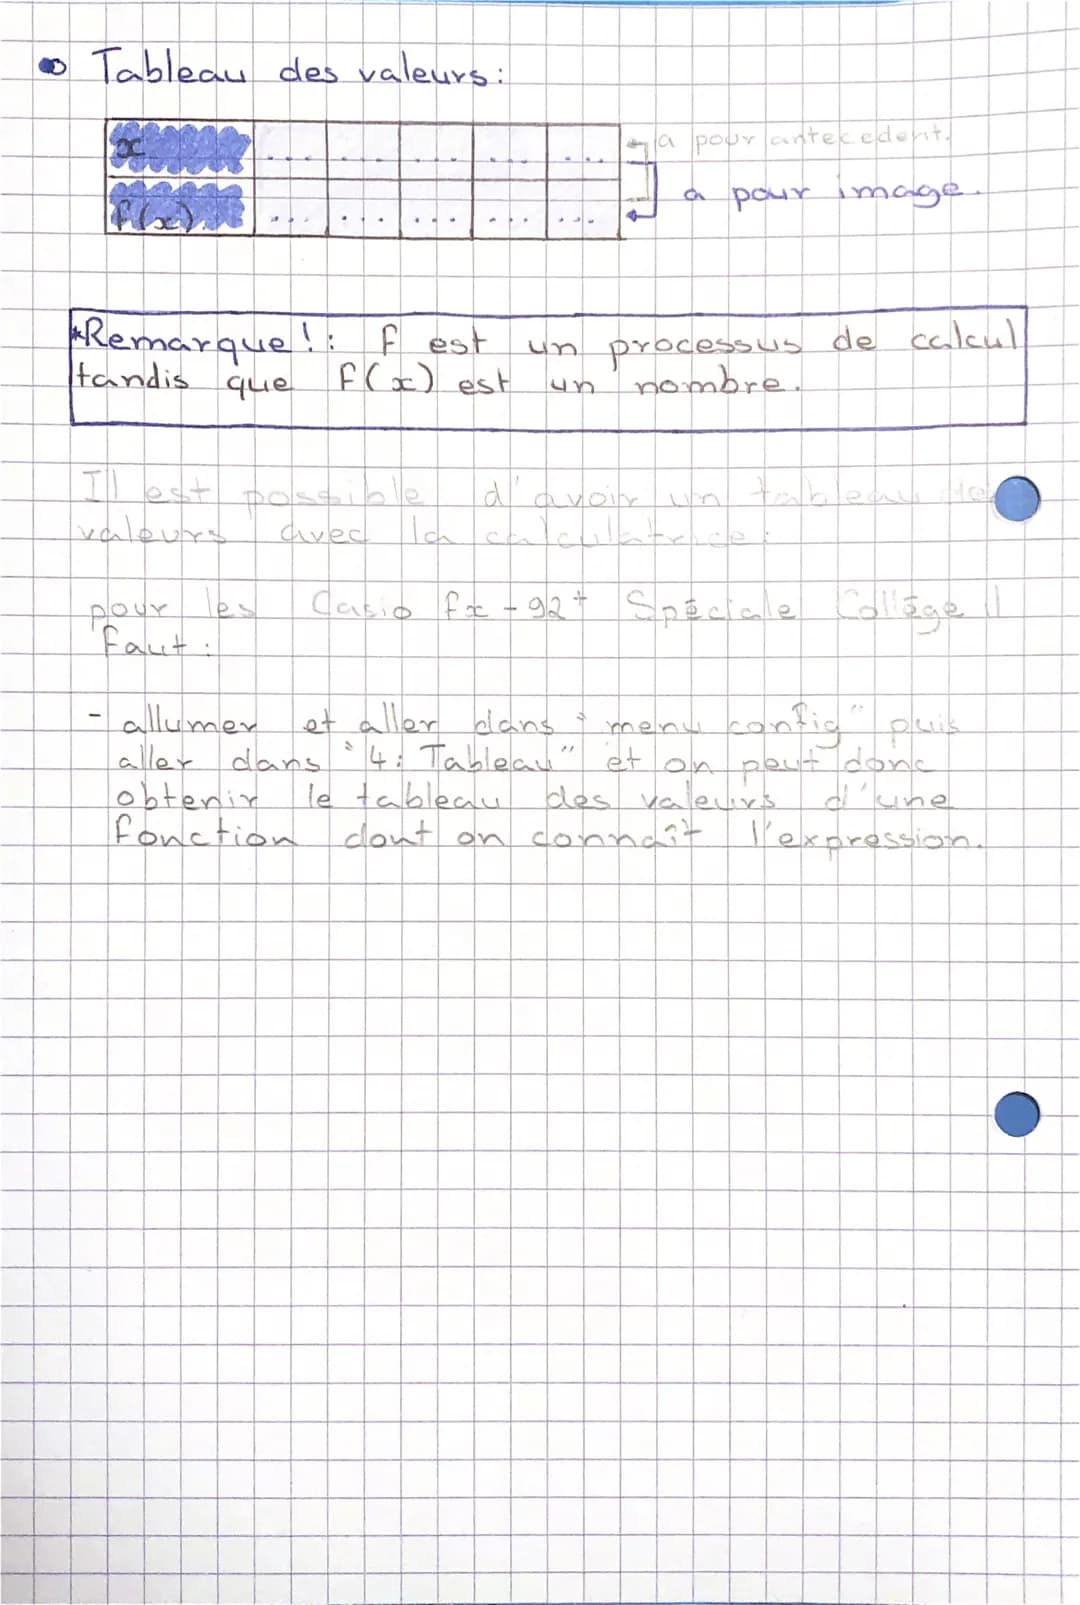 Tableau des valeurs:
x ... ... ... ... ... a pour antecedent.
a pour image.
f(x). ... ... ... ... ...
*Remarque!: f est un processus de calcul
tandis que f(x) est un nombre.
Il est possible d'avoir un tableau de
valeurs avec la calculatrice:
pour les Casio fx-92+ Spéciale Collège il
faut:
- allumer et aller dans "menu config" puis
aller dans "4: Tableau" et on peut donc
obtenir le tableau des valeurs d'une
fonction dont on connaît l'expression.